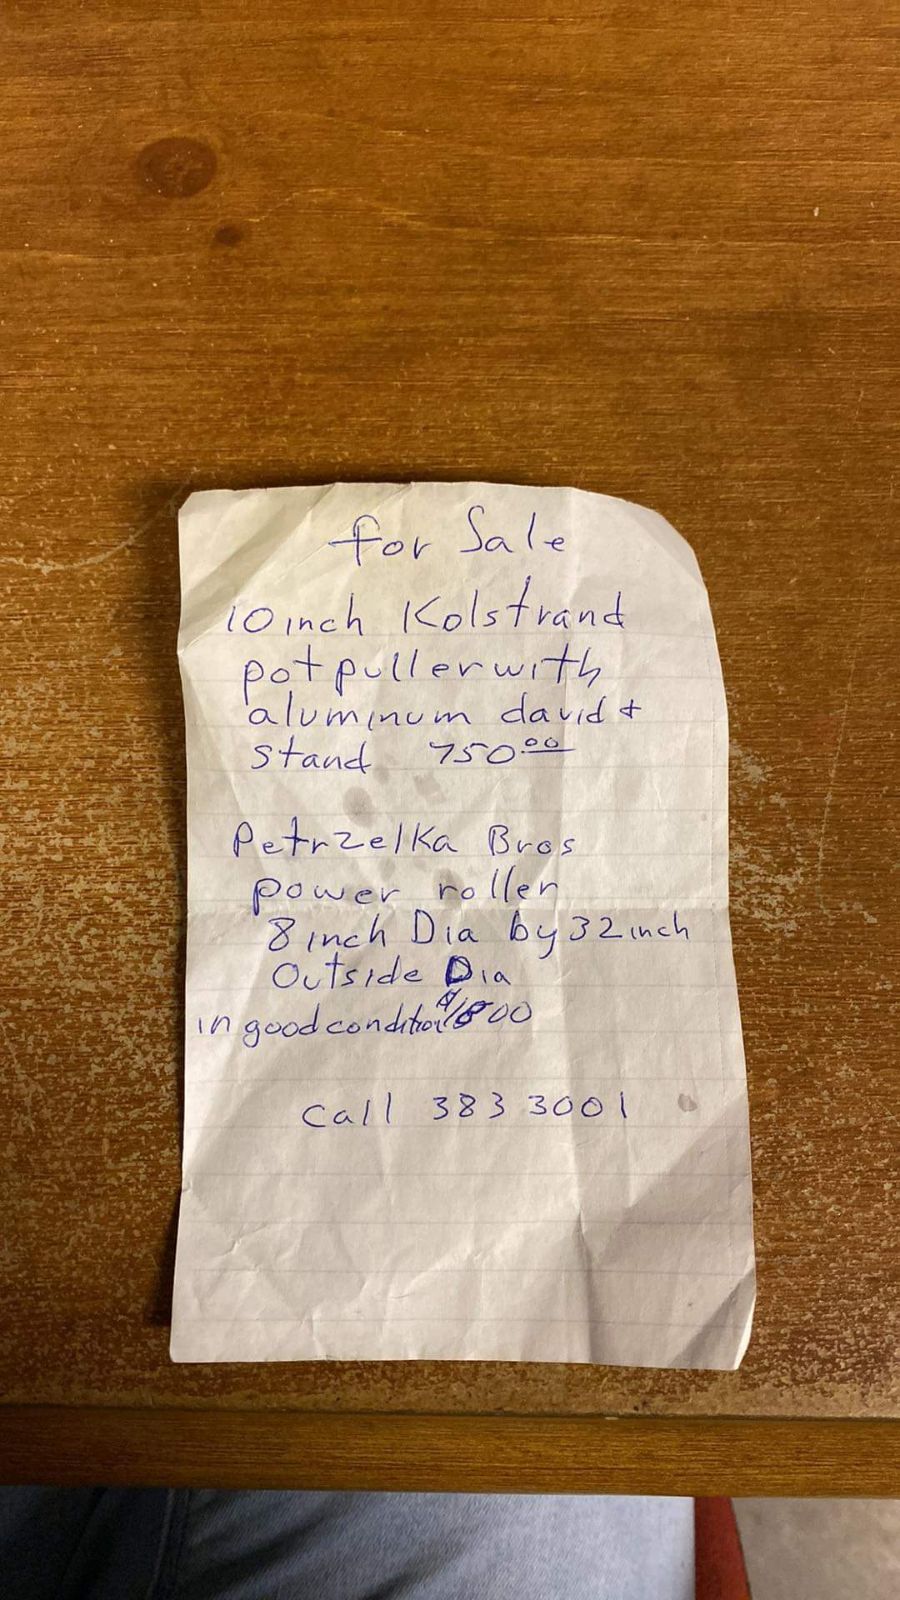 for Sale
10 inch Kolstrand
pot puller with
aluminum david +
stand 750.00
Petrzelka Bros
power roller
8 inch Dia by 32 inch
Outside Dia
in good condition $1800
Call 383 3001